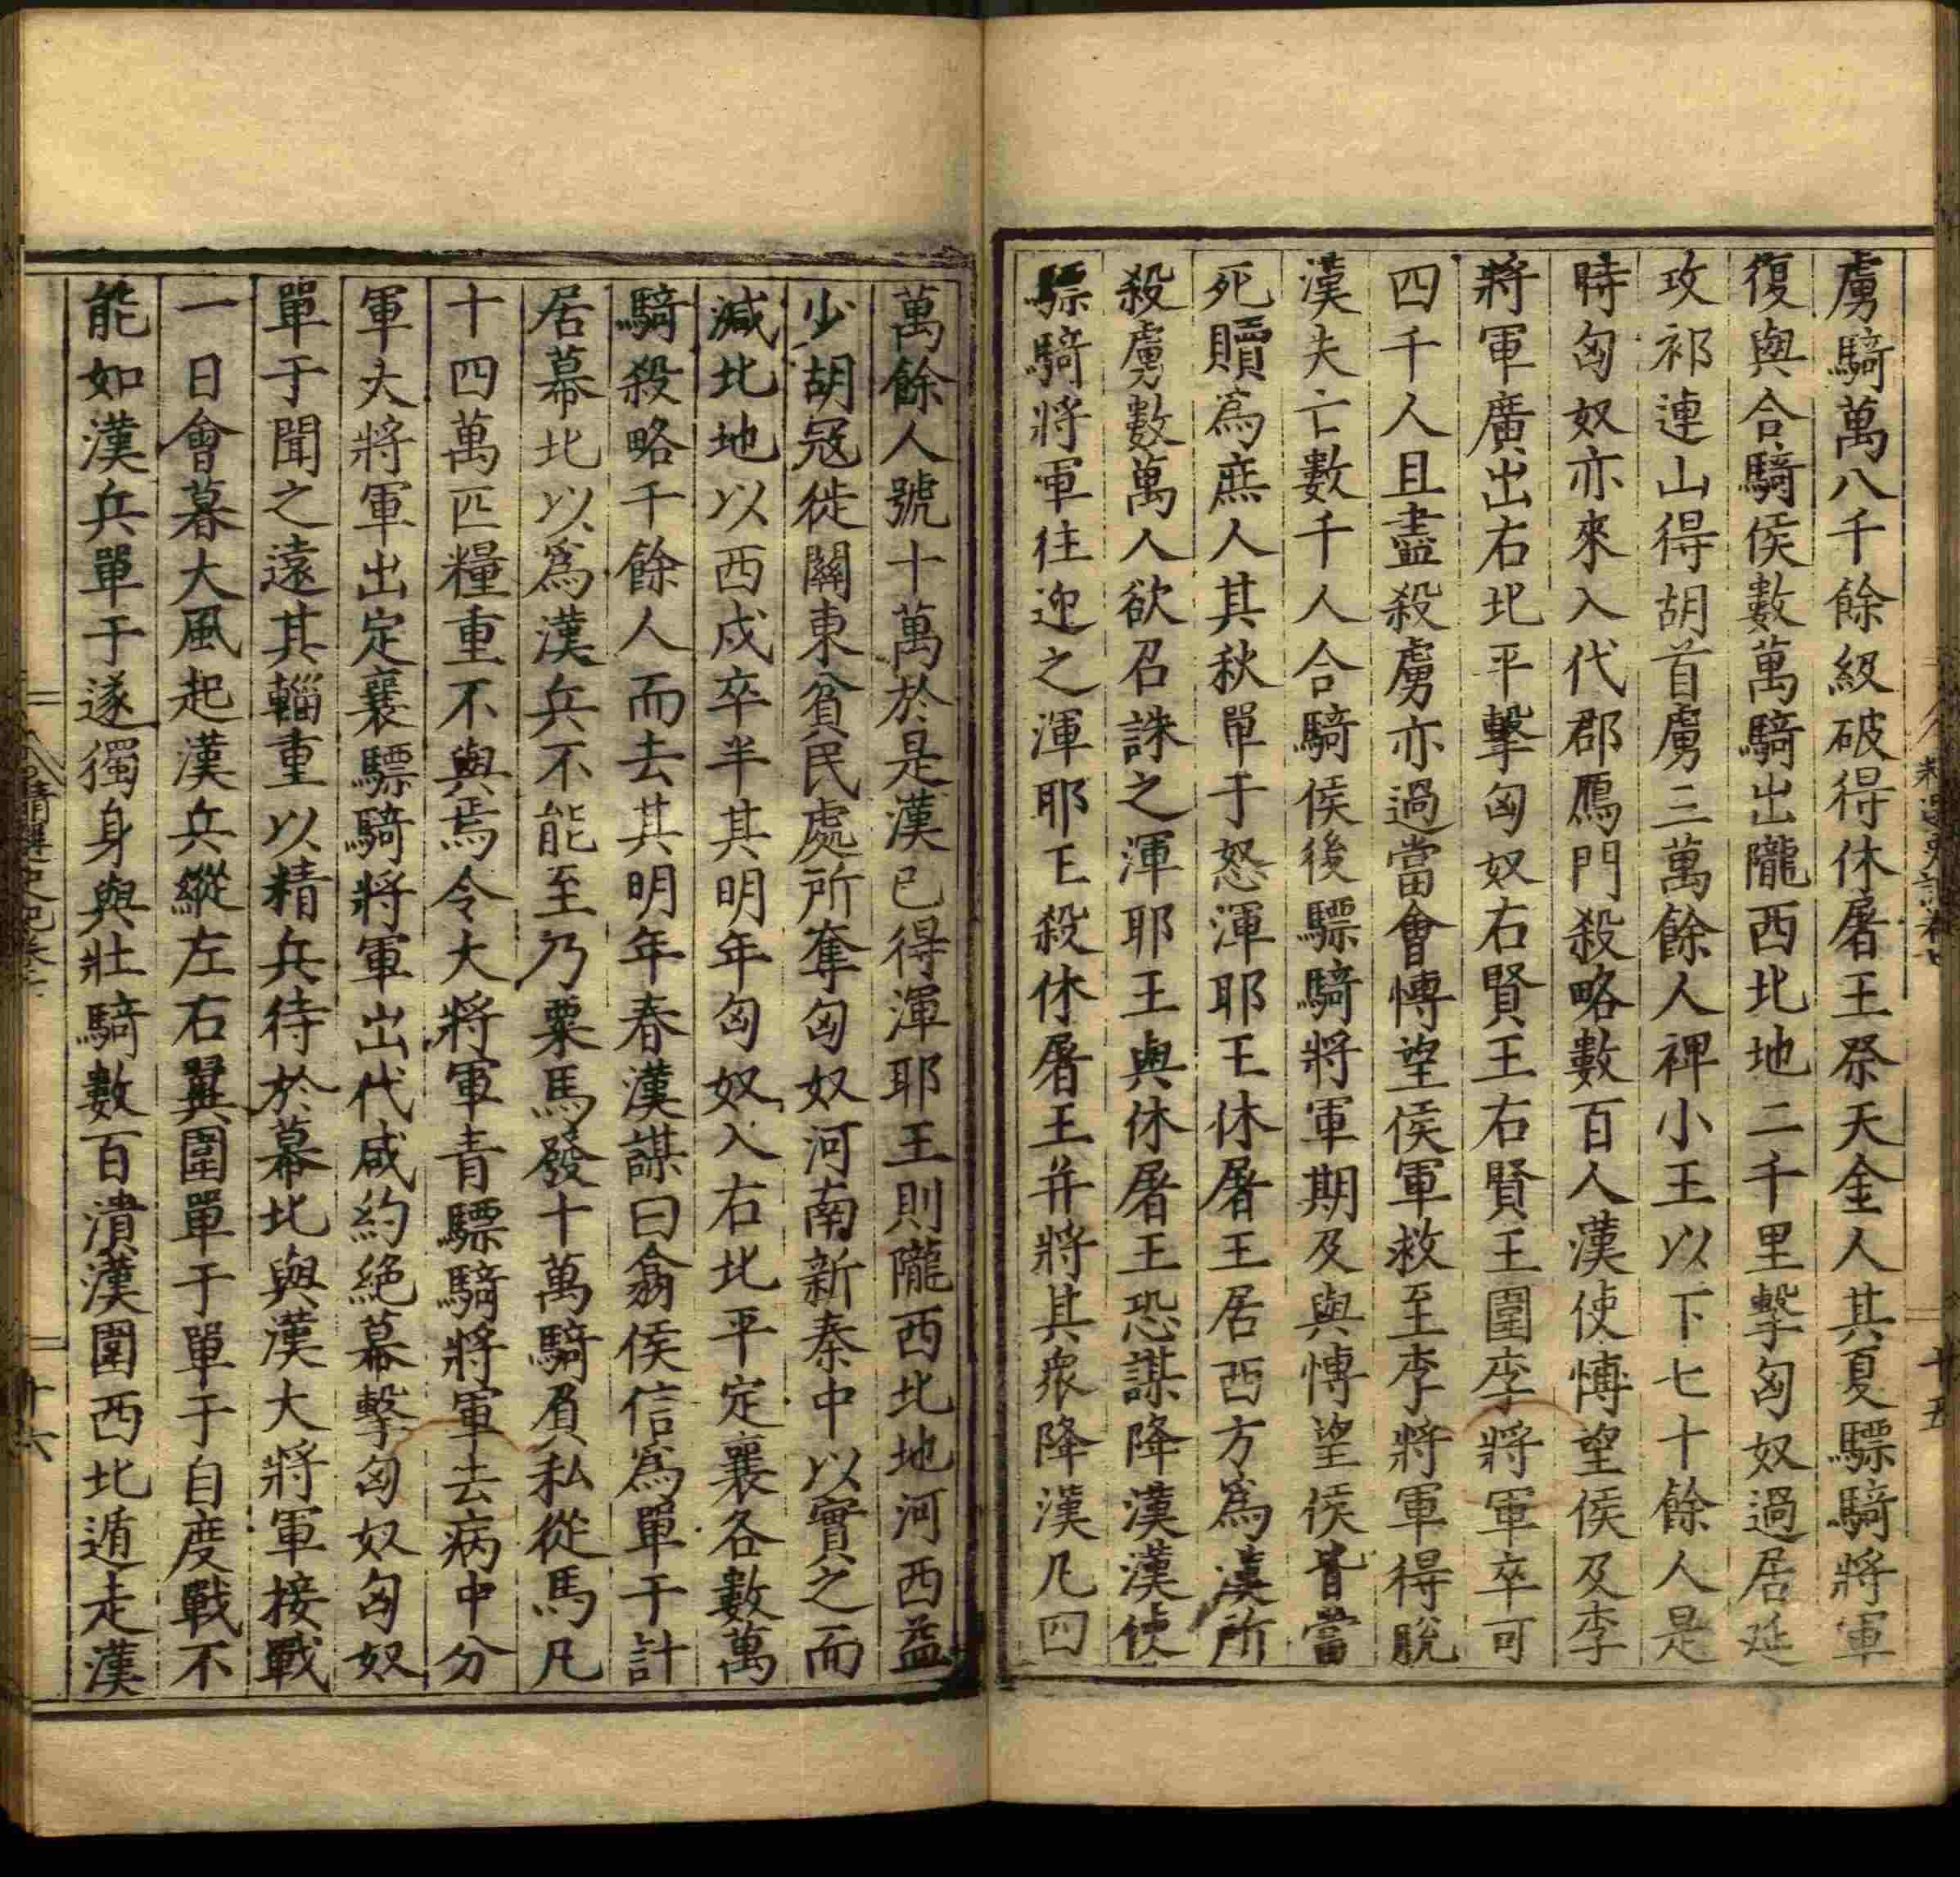 虜騎萬八千餘級破得休屠王祭天金人其夏驃騎將軍
復與合騎侯數萬騎出隴西北地二千里擊匈奴過居延
攻祁連山得胡首虜三萬餘人裨小王以下七十餘人是
時匈奴亦來入代郡鴈門殺略數百人漢使博望侯及李
將軍廣出右北平擊匈奴右賢王右賢王圍李將軍卒可
四千人且盡殺虜亦過當會博望侯軍救至李將軍得脫
漢失亡數千人合騎侯後驃騎將軍期及與博望侯皆當
死贖爲庶人其秋單于怒渾耶王休屠王居西方爲漢所
殺虜數萬人欲召誅之渾耶王與休屠王恐謀降漢漢使
驃騎將軍往迎之渾耶王殺休屠王并將其衆降漢凡四
萬餘人號十萬於是漢已得渾耶王則隴西北地河西益
少胡寇徙關東貧民處所奪匈奴河南新秦中以實之而
減北地以西戍卒半其明年匈奴入右北平定襄各數萬
騎殺略千餘人而去其明年春漢謀曰翕侯信爲單于計
居幕北以爲漢兵不能至乃粟馬發十萬騎負私從馬凡
十四萬匹糧重不與焉令大將軍青驃騎將軍去病中分
軍大將軍出定襄驃騎將軍出代咸約絕幕擊匈奴匈奴
單于聞之遠其輜重以精兵待於幕北與漢大將軍接戰
一日會暮大風起漢兵縱左右翼圍單于單于自度戰不
能如漢兵單于遂獨身與壯騎數百潰漢圍西北遁走漢
十五
十六